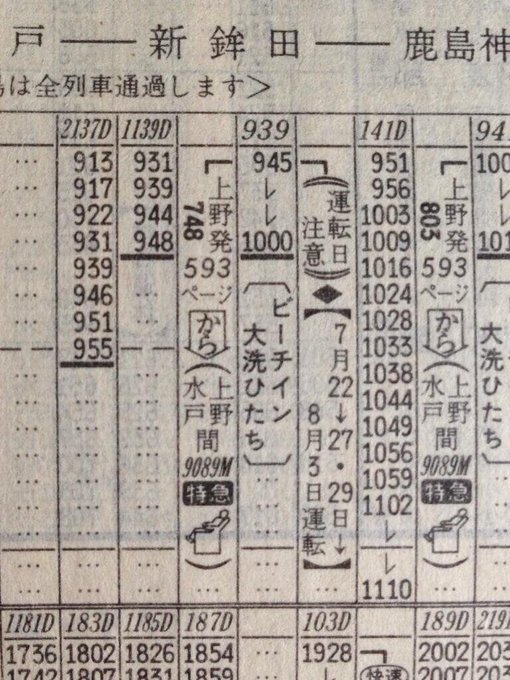 戸 ── 新 鉾 田 ── 鹿島神
は全列車通過します>
2137D 1139D 939 141D 94
913 931 945 951 100
917 939 レ 956 レ
922 944 レ 1003 レ
931 948 1000 1009 101
939 1016
946 … 1024
951 … 1028
955 … 1033
1038
1044
1049
1056
1059
1102
レ
レ
1110
上野発
748
593
ページ
から
(水戸上野間
9089M
特急
)
ビーチイン
大洗ひたち
(運転日
注意)
◆【7月22→27・29日→
8月3日運転】
上野発
803
593
ページ
から
(水戸上野間
9089M
特急
)
大洗ひたち
1181D 183D 1185D 187D 103D 189D 219
1736 1802 1826 1854 1928 快速 2002 203
1742 1807 1831 1859 レ 2007 203